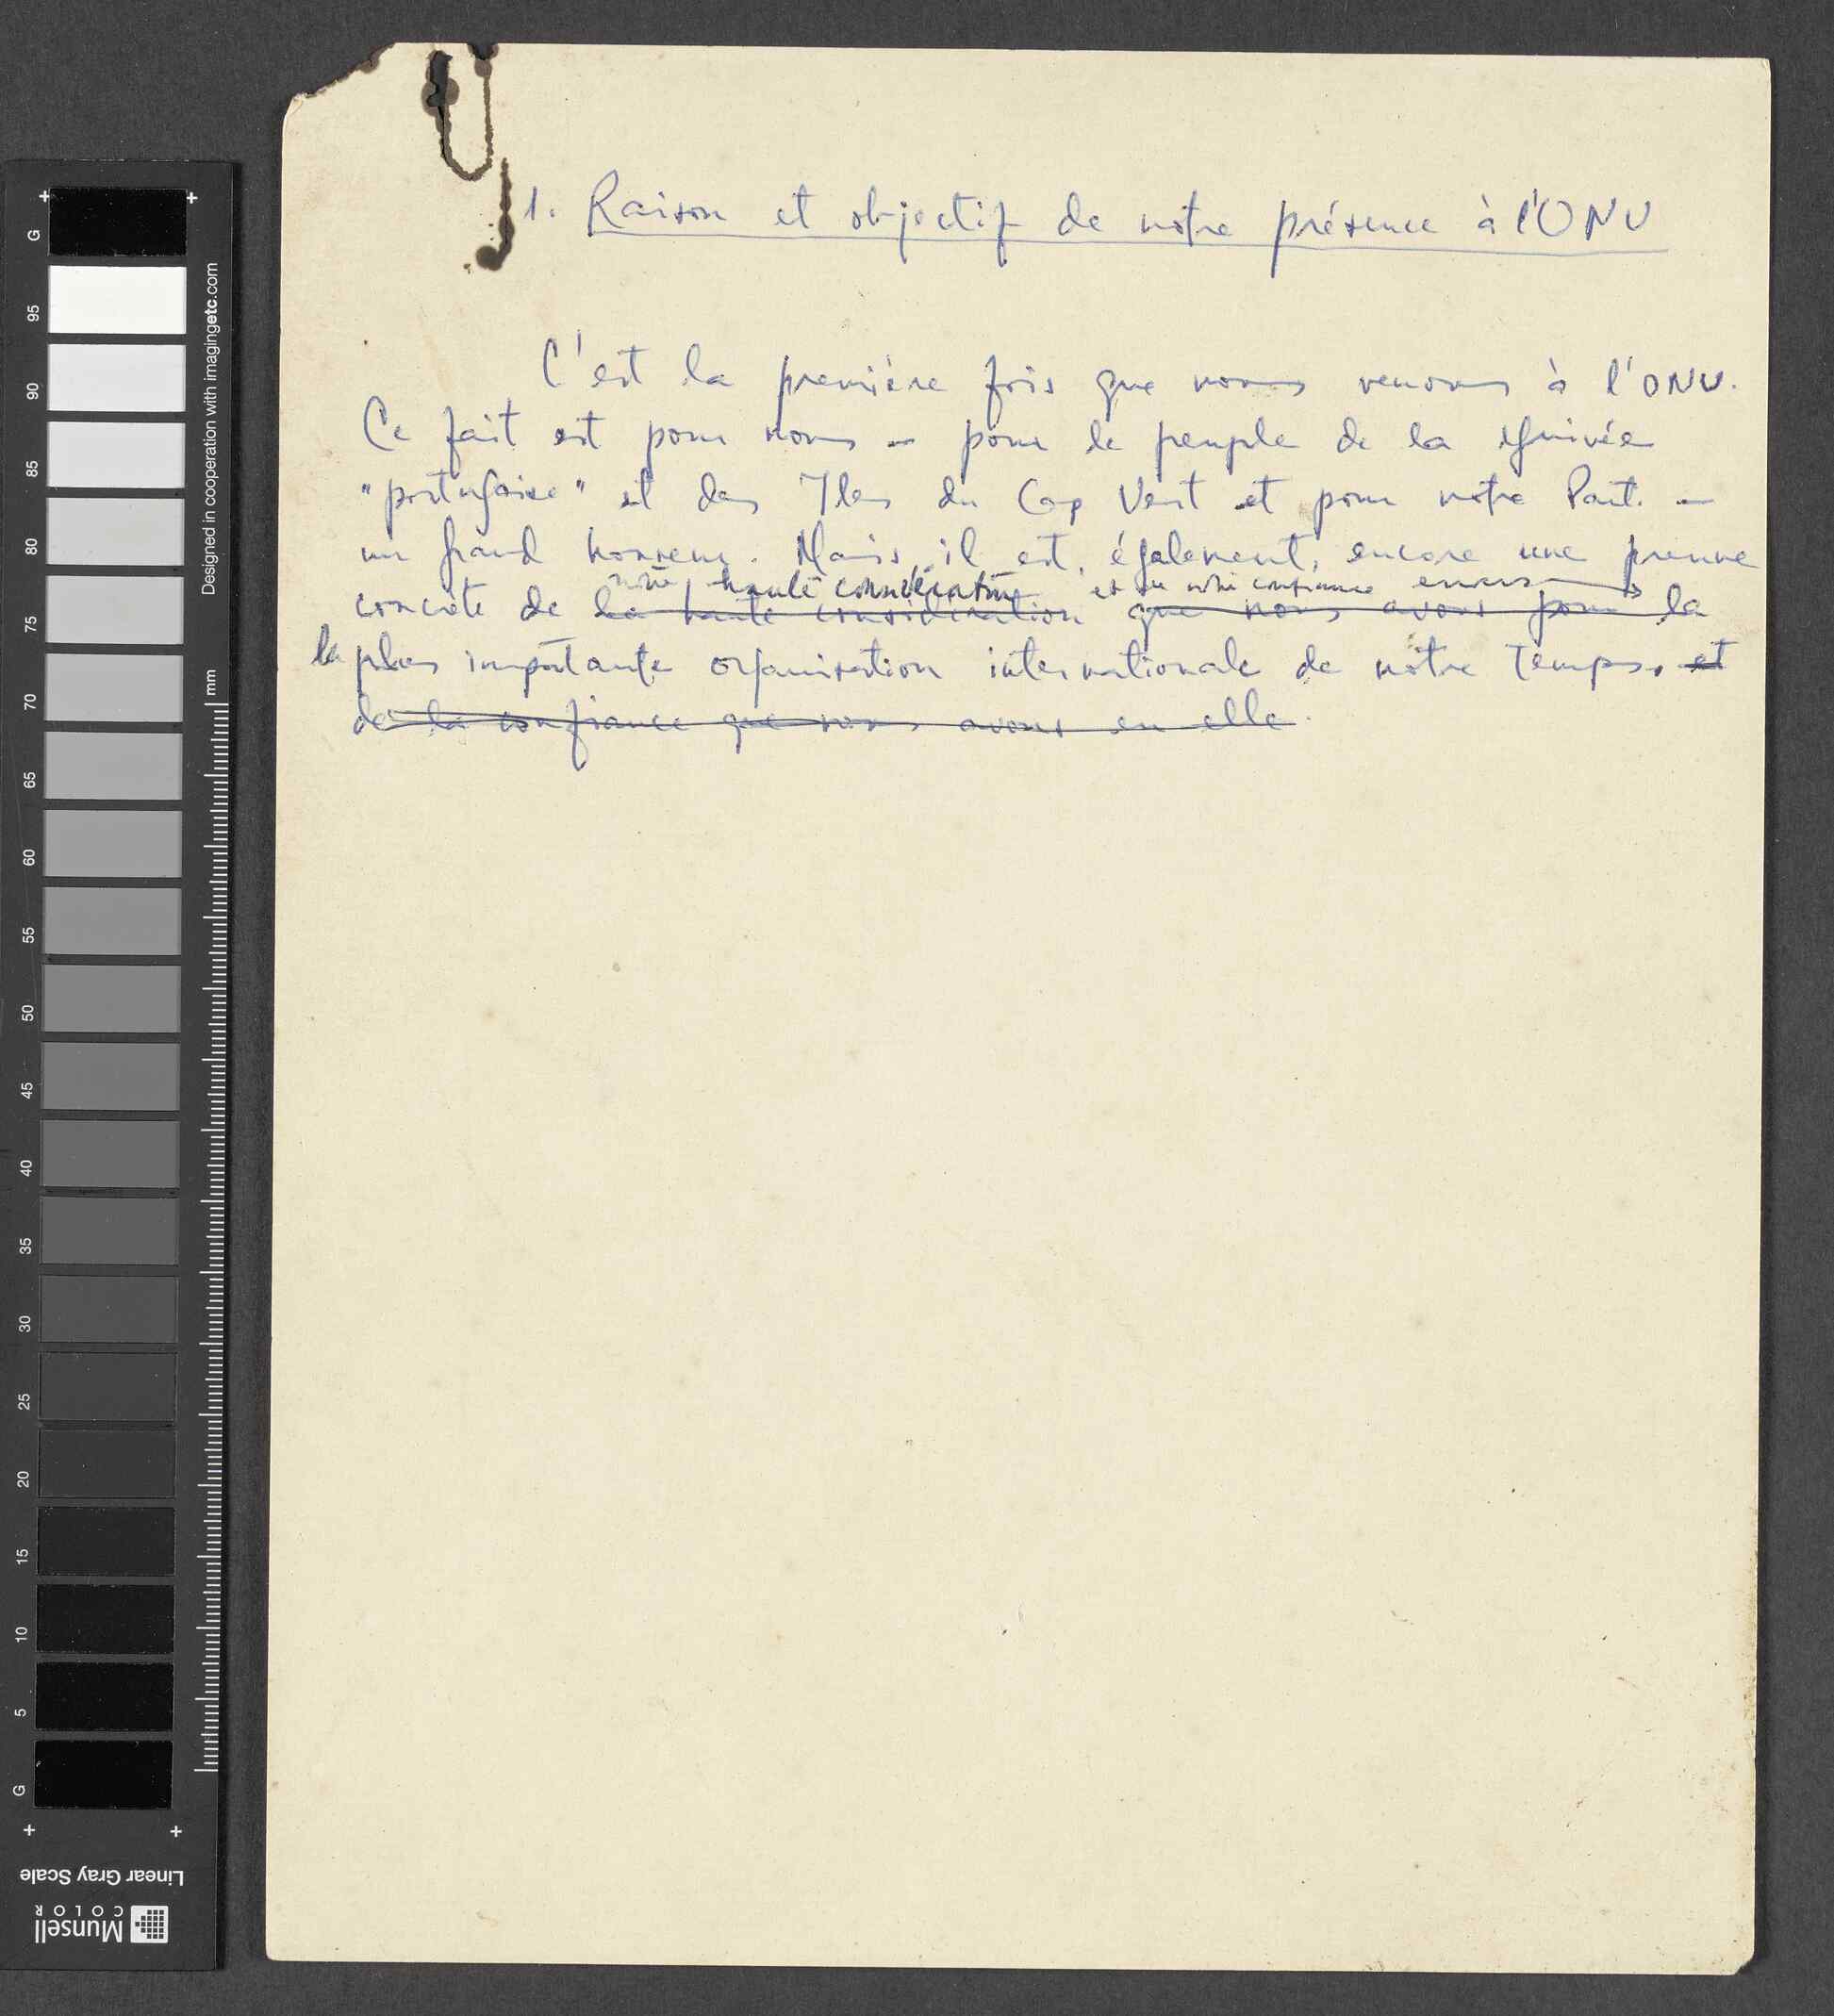 1. Raison et objectif de notre présence à l'ONU
C'est la première fois que nous venons à l'ONU.
Ce fait est pour nous - pour le peuple de la Guinée
"portugaise" et des Iles du Cap Vert et pour notre Part. -
un grand honneur. Mais il est, également, encore une preuve
notre haute considération et de notre confiance envers
concrète de la haute considération que nous avons pour la
la plus importante organisation internationale de notre temps. et
de la confiance que nous avons en elle.
G
95
90
85
80
75
70
65
60
55
50
45
40
35
30
25
20
15
10
5
G
Designed in cooperation with imagingetc.com
mm
Linear Gray Scale
Munsell
COLOR